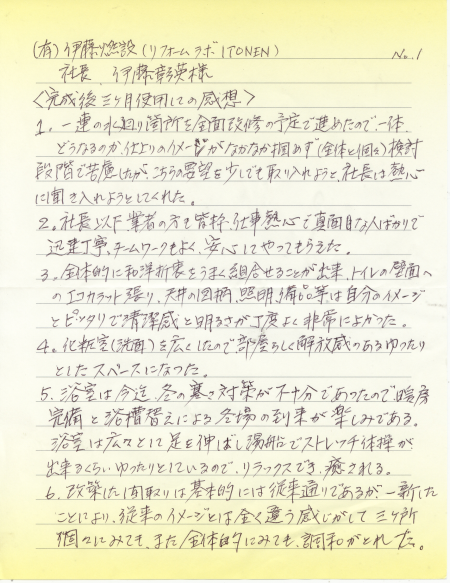 (有)伊藤燃設(リフォームラボITONEN) No.1
社長、伊藤彰英様
〈完成後三ヶ月使用しての感想〉
1. 一連の水廻り箇所を全面改修の予定で進めたので、一体
どうなるのか、仕上りのイメージがなかなか掴めず(全体と個々)検討
段階で苦慮したが、こちらの要望を少しでも取り入れようと、社長は熱心
に聞き入れようとしてくれた。
2. 社長以下業者の方も皆様、仕事熱心で真面目な人ばかりで
迅速丁寧、チームワークもよく、安心してやってもらえた。
3. 全体的に和洋折衷をうまく組合せることが出来、トイレの壁面へ
のエコカラット張り、天井の図柄、照明、備品等は自分のイメージ
とピッタリで清潔感と明るさが丁度よく非常によかった。
4. 化粧室(洗面)を広くしたので、部屋らしく解放感のあるゆったり
としたスペースになった。
5. 浴室は今迄、冬の寒さ対策が不十分であったので、暖房
完備と浴槽替えによる冬場の到来が楽しみである。
浴室は広々として足を伸ばし湯船でストレッチ体操が
出来るくらいゆったりとしているので、リラックスでき、癒される。
6. 改築した間取りは基本的には従来通りであるが、一新した
ことにより、従来のイメージとは全く違う感じがして三ヶ所
個々にみても、また全体的にみても、調和がとれた。